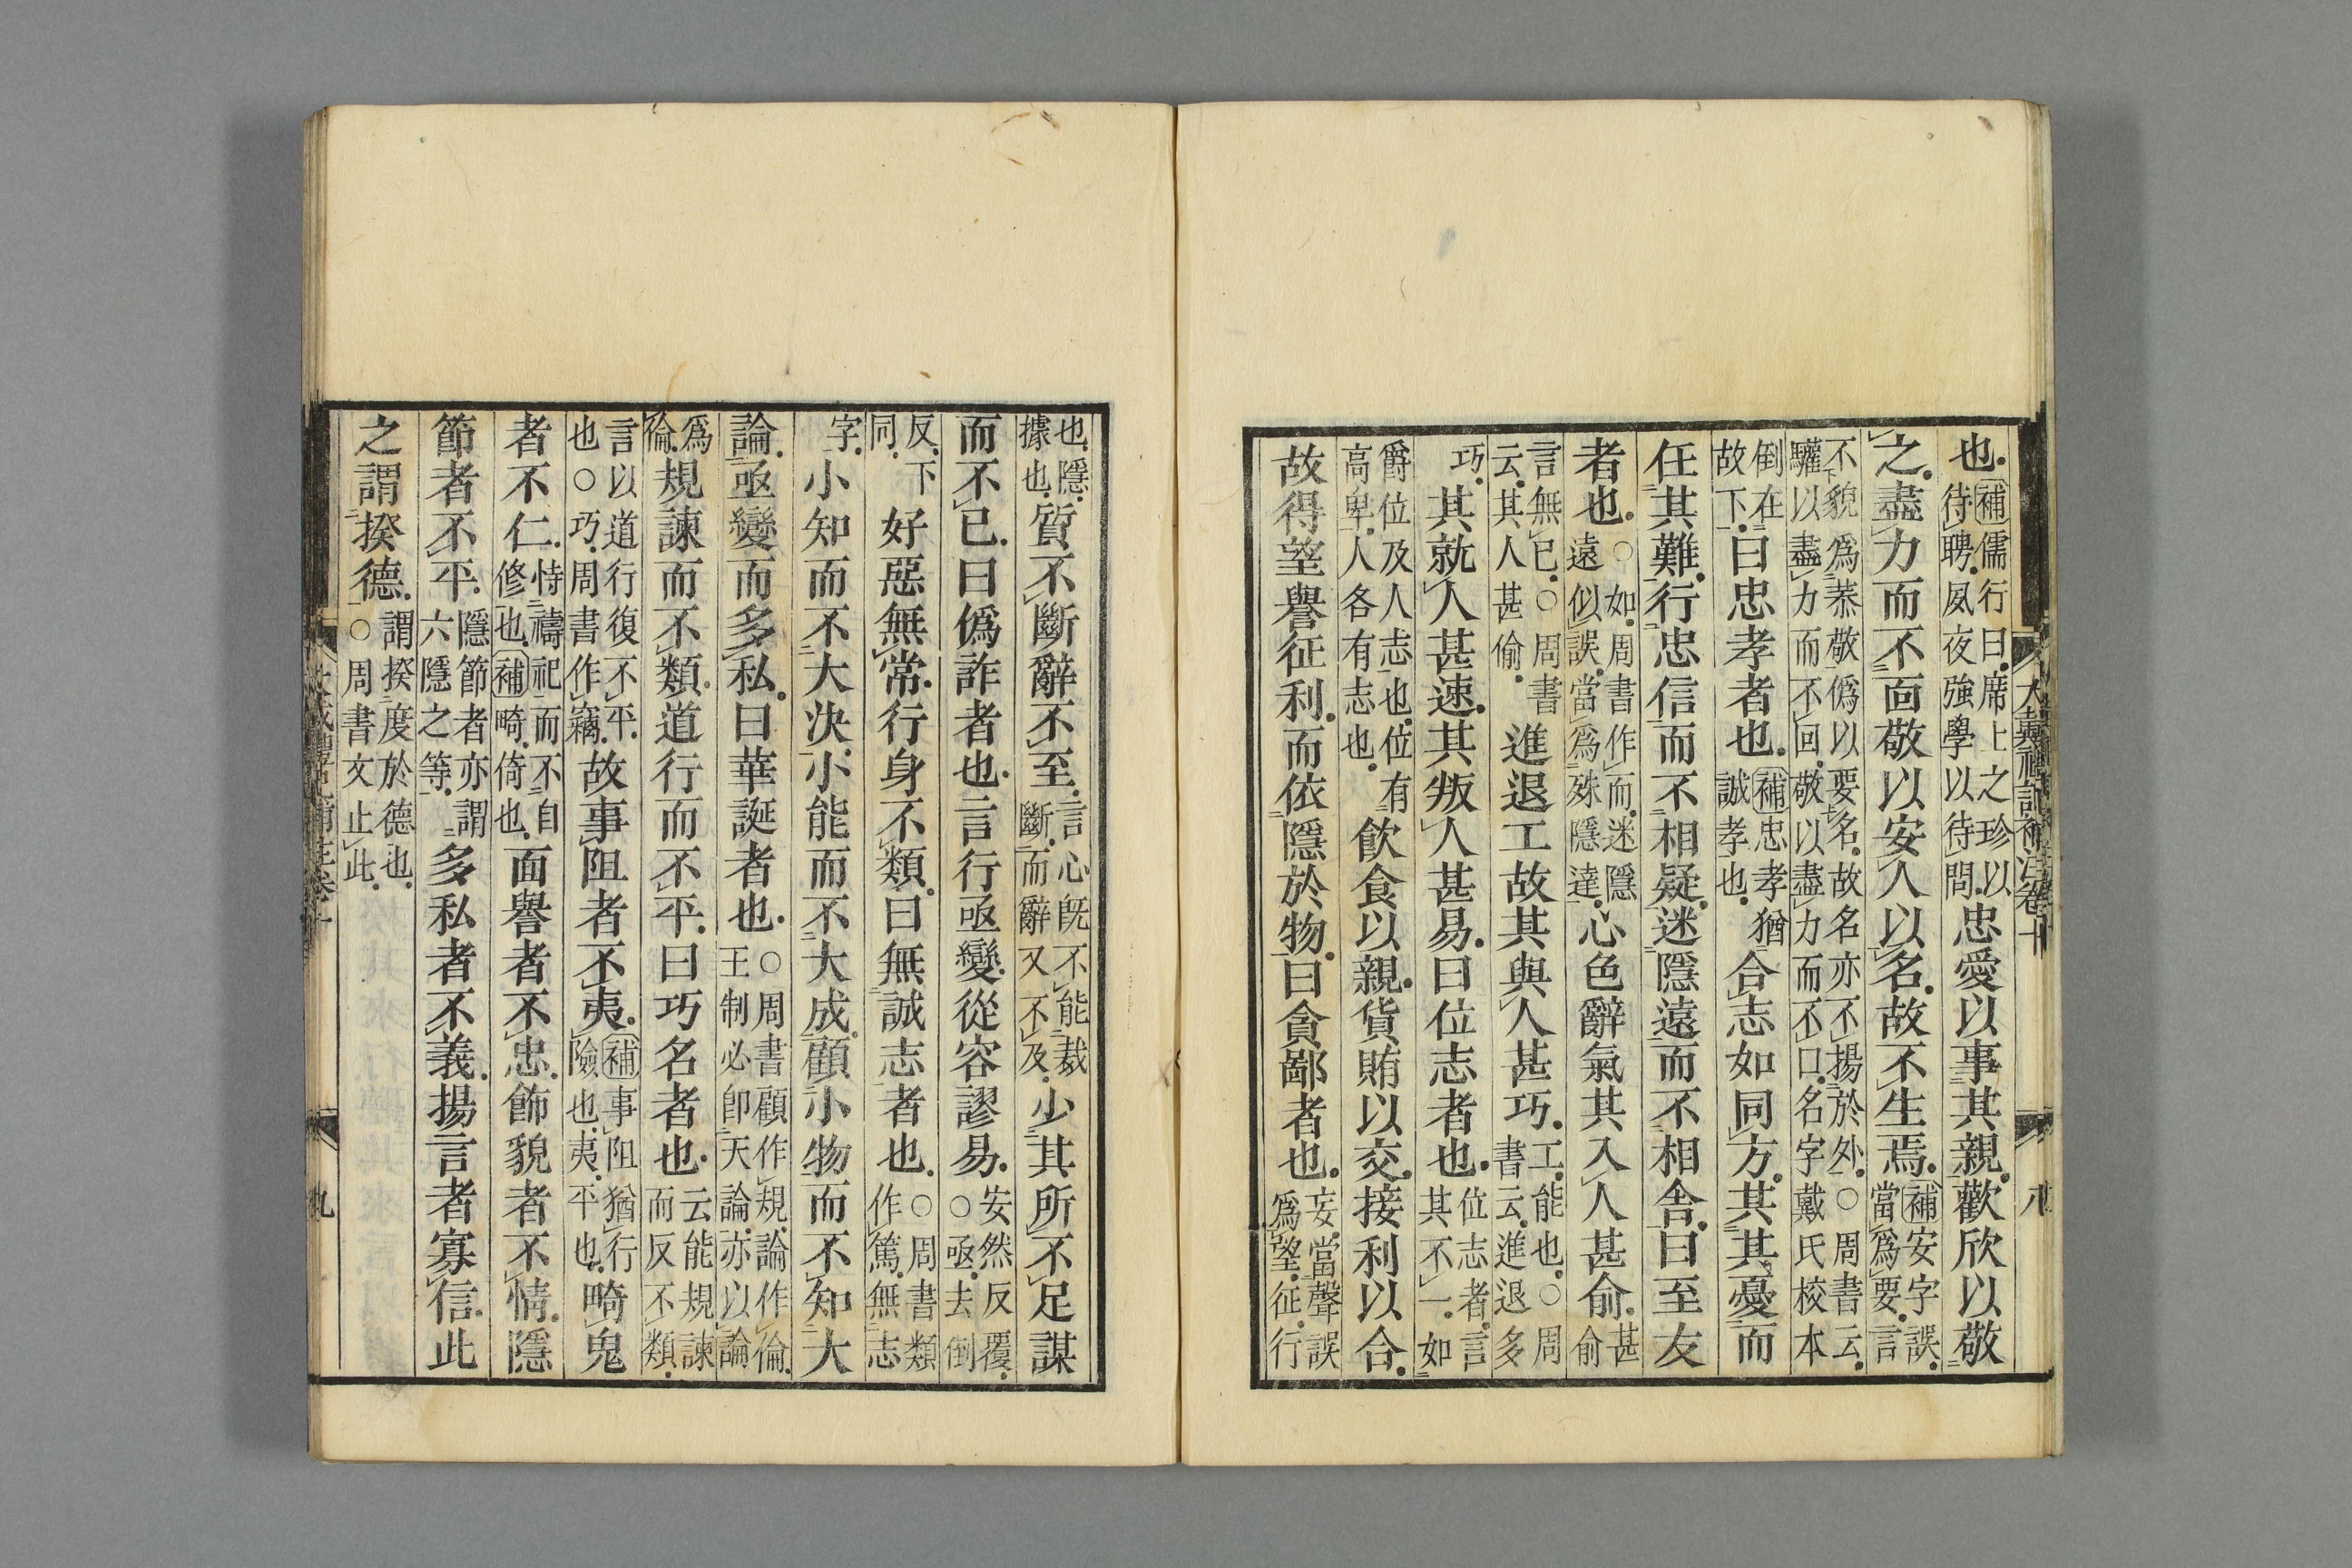 也補儒行曰席上之珍以待聘夙夜強學以待問忠愛以事其親歡欣以敬
之盡力而不面敬以安人以名故不生焉補安字誤當爲要言
不貌爲恭敬僞以要名故名亦不揚於外○周書云驩以盡力而不回敬以盡力而不口名字戴氏校本
倒在故下曰忠孝者也補忠孝猶誠孝也合志如同方其其憂而
任其難行忠信而不相疑迷隱遠而不相舍曰至友
者也○如周書作而迷隱遠似誤當爲殊隱達心色辭氣其入人甚俞甚俞
言無已○周書云其人甚偷進退工故其與人甚巧工能也○周書云進退多
巧其就人甚速其叛人甚易曰位志者也位志者言其不一如
爵位及人志也位有高卑人各有志也飲食以親貨賄以交接利以合
故得望譽征利而依隱於物曰貪鄙者也妄當聲誤爲望征行
大戴禮記補注卷十
八
也隱據也質不斷辭不至言心旣不能裁斷而辭又不及少其所不足謀
而不已曰僞詐者也言行亟變從容謬易安然反覆○亟去倒
反下同好惡無常行身不類曰無誠志者也○周書類作篤無志
字小知而不大決小能而不大成顧小物而不知大
論亟變而多私曰華誕者也○周書顧作規論作倫王制必卽天論亦以論
爲倫規諫而不類道行而不平曰巧名者也云能規諫而反不類
言以道行復不平也○巧周書作竊故事阻者不夷補事阻猶行險也夷平也畸鬼
者不仁恃禱祀而不自修也補畸倚也面譽者不忠飾貌者不情隱
節者不平隱節者亦謂六隱之等多私者不義揚言者寡信此
之謂揆德謂揆度於德也○周書文止此
九